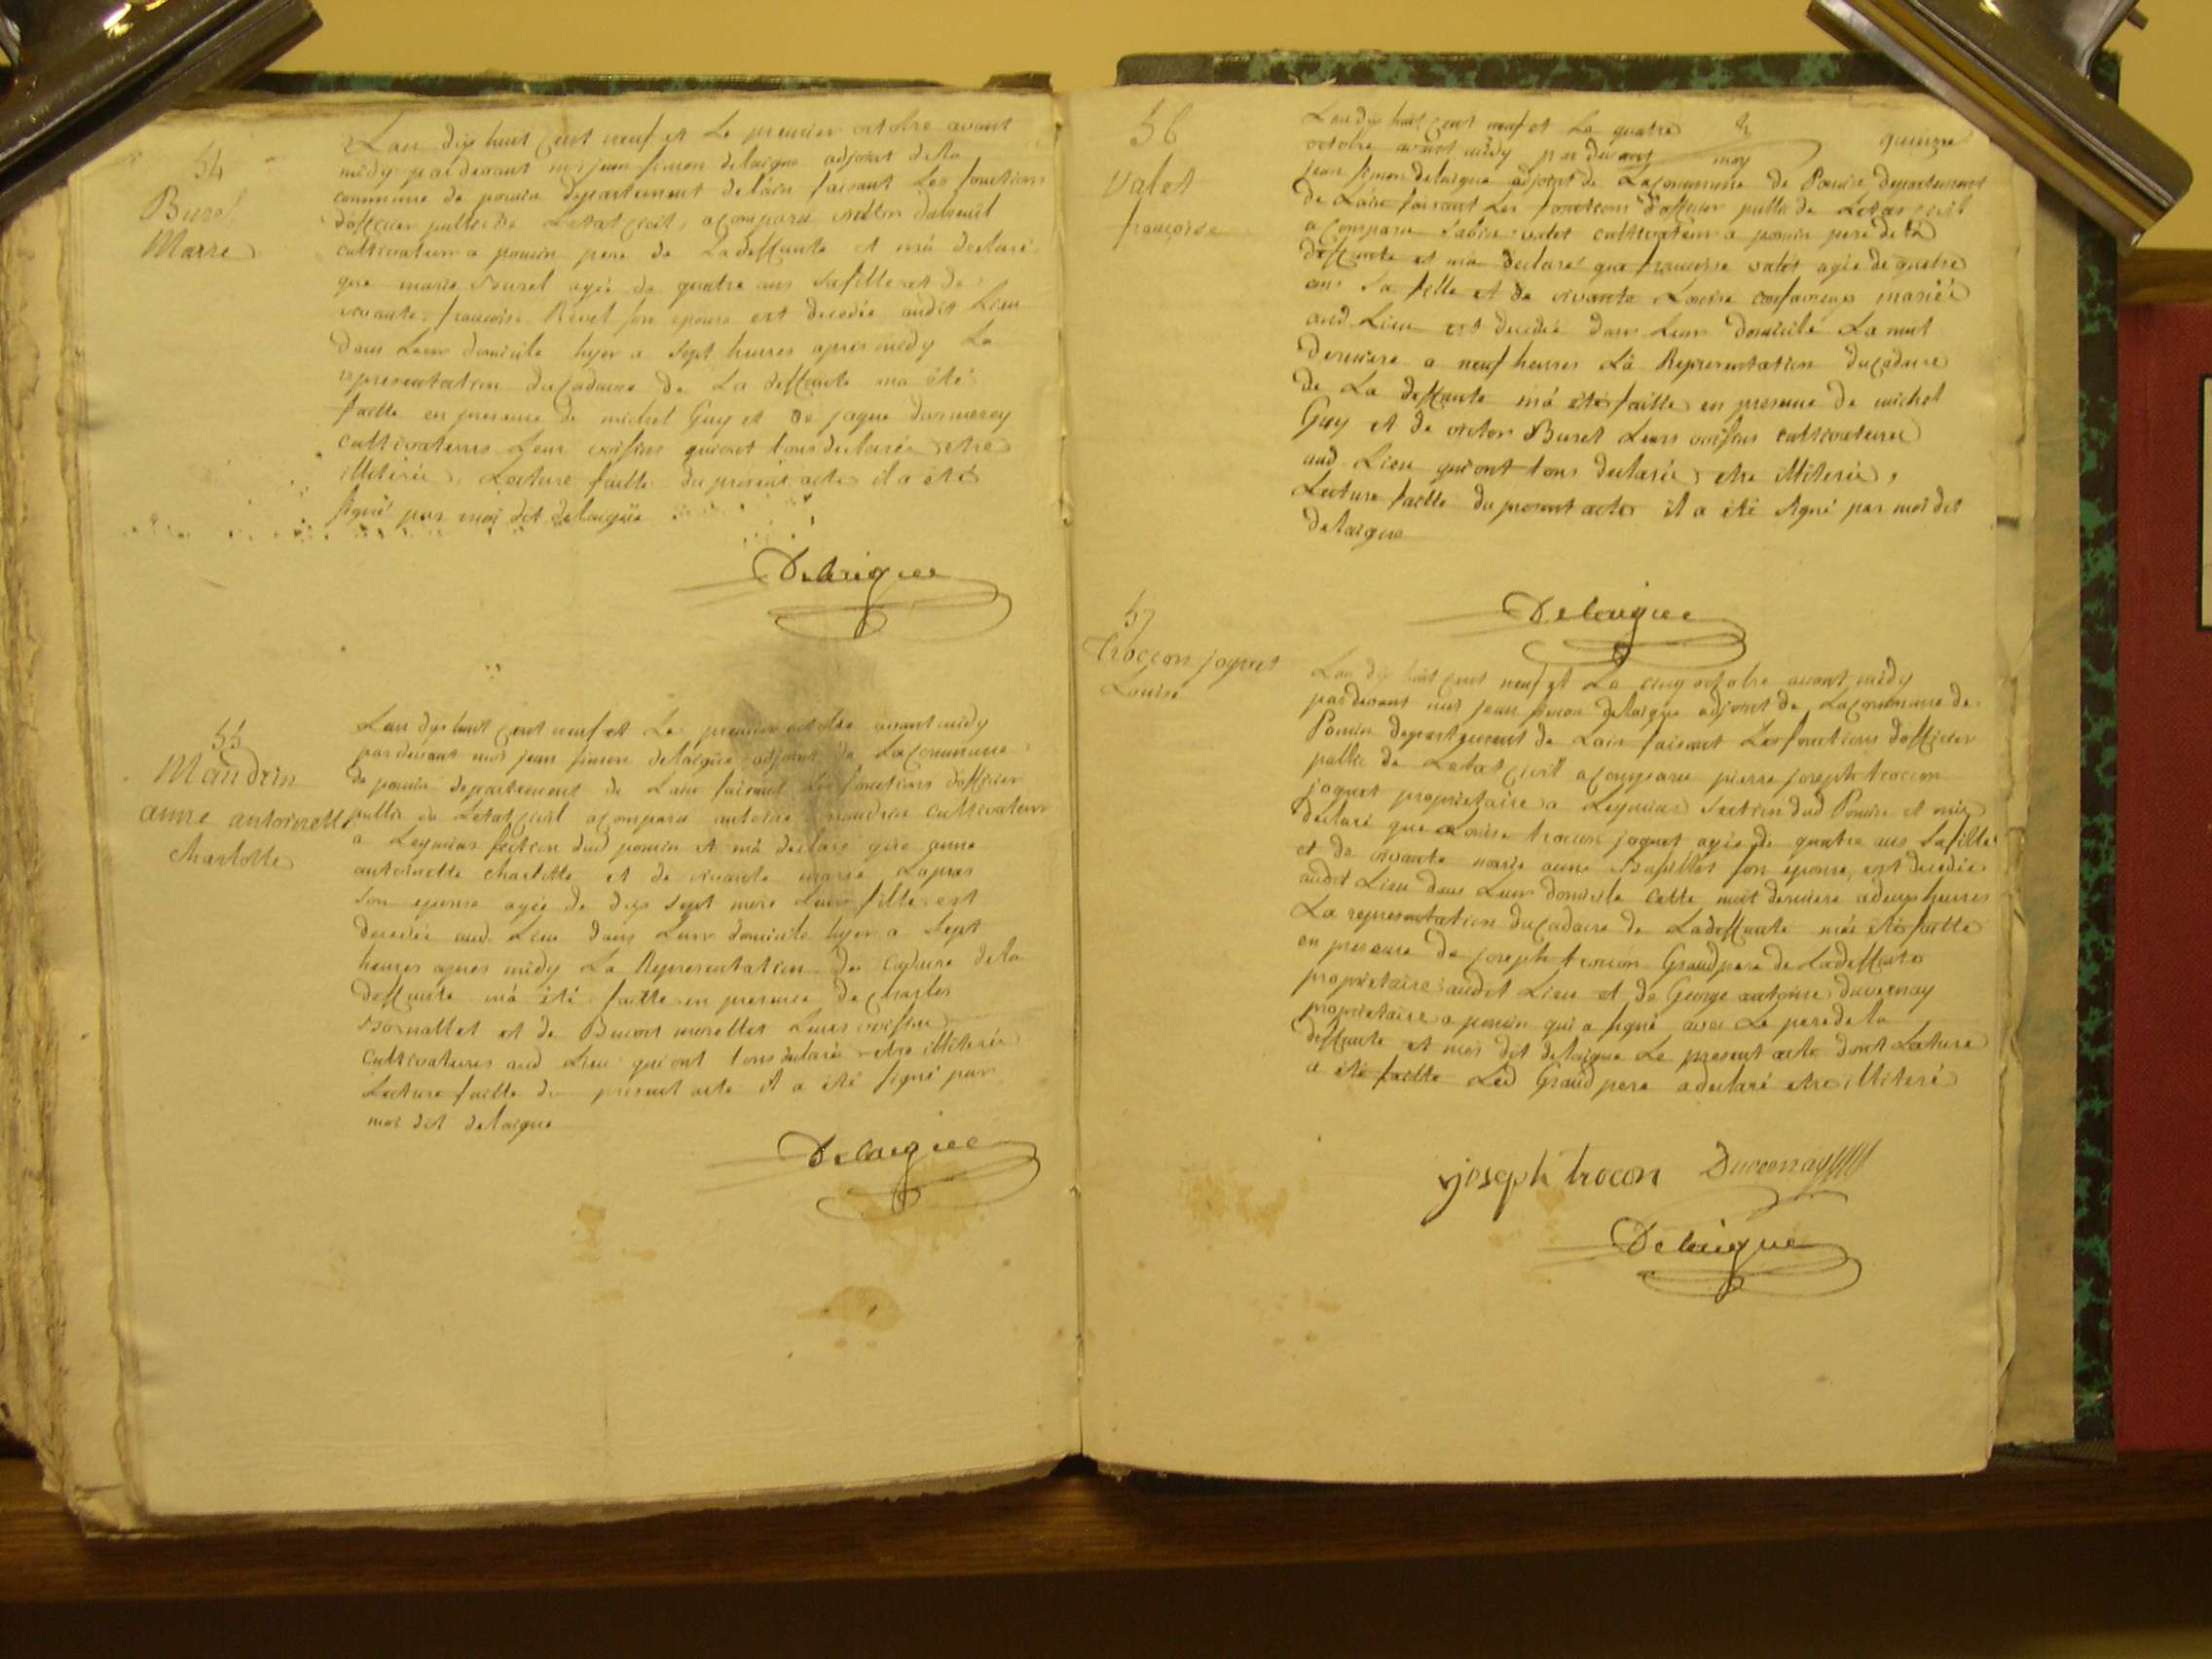 54
Burel
Marie
Lan dix huit cent neuf et Le premier octobre avant
midy pardevant moi jean simon delaigue adjoint dela
commune de poncin departement delain faisant Les fonctions
dofficier public de Letat civil, a comparu victor
cultivateur a poncin pere de Ladeffunte et má declaré
que marie Burel agée de quatre ans safille et de
vivante francoise Revel son epouse est decedée audit Lieu
dans Leur domicile hyer a sept heures apres midy La
representation du Cadavre de La deffunte ma été
faitte en presence de michel Guy et De jaque
cultivateurs Leur voisins quiont tous declarée etre
illiterée, Lecture faitte du present acte il a été
signé par moi dit delaigue
Delaigue
55
Maudrin
anne antoinette
charlotte
Lan dix huit cent neuf et Le premier octobre avant midy
pardevant moi jean simon delaigue adjoint de La Commune
de poncin departement de Lain faisant Les fonctions dofficier
public de Letat civil a comparu antoine maudrin cultivateur
a Leymiat section dud poncin et má declaré que anne
antoinette charlotte et de vivante marie Lapras
son epouse agée de dix sept mois Leur fille est
decedée aud. Lieu dans Leur domicile hyer a sept
heures apres midy La Representation du Cadavre dela
deffunte má été faitte en presence de charles
et de morellet Leurs voisins
cultivateurs aud Lieu quiont tous declarée etre illiterée
Lecture faitte du present acte il a été signé par
moi dit delaigue
Delaigue
56
Valet
francoise
Lan dix huit cent neuf et Le quatre
octobre avant midy par devant moy
jean simon delaigue adjoint de La Commune de Poncin, departement
de Lain faisant Les fonctions d'officier public de Letat civil
a Comparu Sabin valet cultivateur a poncin pere de la
deffunte et má declaré que francoise valet agée de quatre
ans Sa fille et de vivante Louise mariée
aud. Lieu est decedée dans Leur domicile La nuit
derniere a neuf heures La Representation du Cadavre
de La deffunte má été faitte en presence de michel
Guy et de victor Burel Leurs voisins cultivateurs
aud. Lieu quiont tous declarée etre illiterée,
Lecture faitte du present acte il a été signé par moi dit
delaigue
Delaigue
57
Troccon joguet
Louise
Lan dix huit cent neuf et Le cinq octobre avant midy
pardevant moi jean simon delaigue adjoint de La Commune de
Poncin departement de Lain faisant Les fonctions dofficier
public de Letat civil a comparu pierre joseph troccon
joguet proprietaire a Leymiat Section dud Poncin et má
declaré que Louise troccon joguet agée de quatre ans Safille
et de vivante marie anne son epouse, est decedée
audit Lieu dans Leur domicile cette nuit derniere a deux heures
La representation du Cadavre de Ladeffunte má été faitte
en presence de joseph troccon Grand pere de Ladeffunte
proprietaire audit Lieu et de George antoine duvernay
proprietaire a poncin qui a signé avec Le pere dela
deffunte et moi dit delaigue Le present acte dont Lecture
a été faitte Led Grand pere a declaré etre illiteré
joseph trocon Duvernay
Delaigue